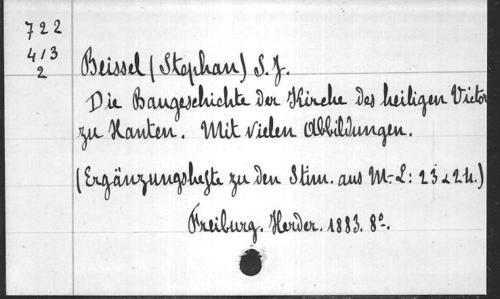 722
413
2
Beissel (Stephan) S. J.
Die Baugeschichte der Kirche des heiligen Victor
zu Xanten. Mit vielen Abbildungen.
(Ergänzungshefte zu den Stim. aus M.-L: 23 & 24.)
Freiburg. Herder. 1883. 8º.